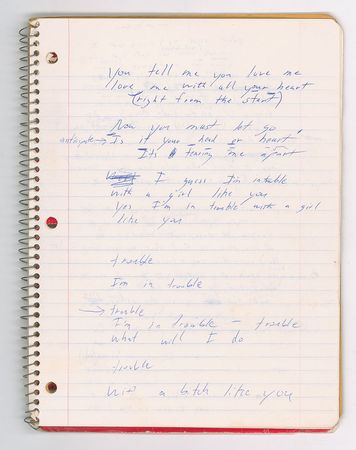 You tell me you love me
love me with all your heart
(right from the start)
Now you must let go
anticipate → Is it your head or heart
Its tearing me apart
I guess I'm in trouble
with a girl like you
Yes I'm in trouble with a girl
like you
trouble
I'm in trouble
→ trouble
I'm in trouble - trouble
what will I do
trouble
with a bitch like you